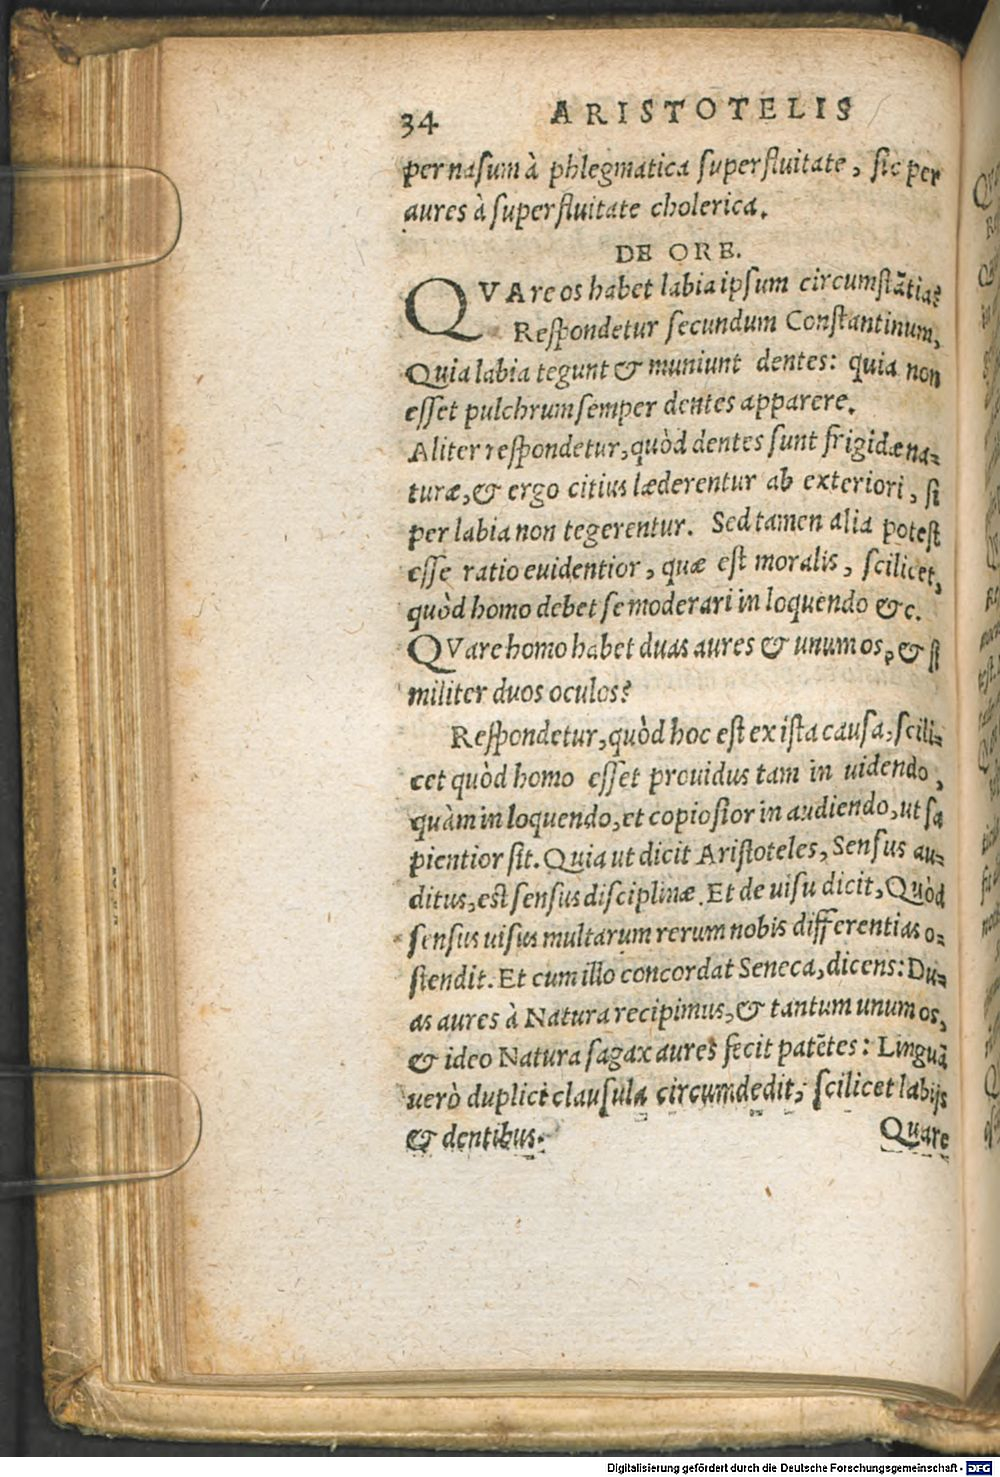 34 ARISTOTELIS
per nasum à phlegmatica superfluitate, sic per
aures à superfluitate cholerica.
DE ORE.
QVAre os habet labia ipsum circumstãtia?
Respondetur secundum Constantinum,
Quia labia tegunt & muniunt dentes: quia non
esset pulchrum semper dentes apparere.
Aliter respondetur, quòd dentes sunt frigidæ na-
turæ, & ergo citius læderentur ab exteriori, si
per labia non tegerentur. Sed tamen alia potest
esse ratio euidentior, quæ est moralis, scilicet,
quòd homo debet se moderari in loquendo &c.
QVare homo habet duas aures & unum os, & si
militer duos oculos?
Respondetur, quòd hoc est ex ista causa, scili-
cet quòd homo esset prouidus tam in uidendo,
quàm in loquendo, et copiosior in audiendo, ut sa
pientior sit. Quia ut dicit Aristoteles, Sensus au-
ditus, est sensus disciplinæ. Et de uisu dicit, Quòd
sensus uisus multarum rerum nobis differentias o-
stendit. Et cum illo concordat Seneca, dicens: Du-
as aures à Natura recipimus, & tantum unum os,
& ideo Natura sagax aures fecit patẽtes: Linguã
uerò duplici clausula circumdedit, scilicet labijs
& dentibus.
Quare
Digitalisierung gefördert durch die Deutsche Forschungsgemeinschaft - DFG